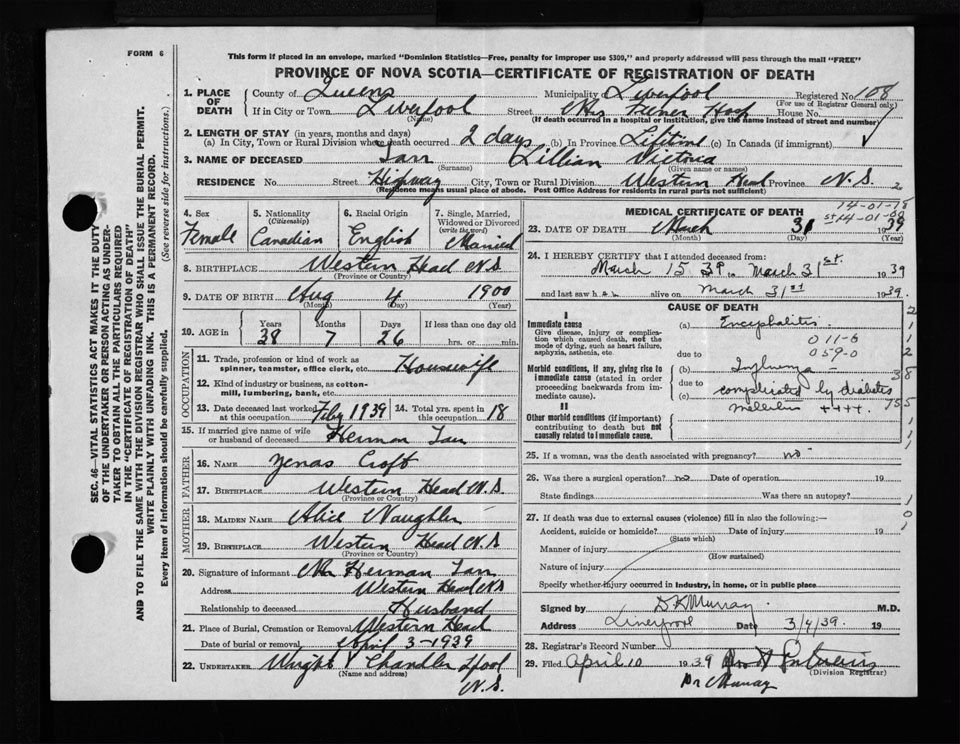 FORM 6
This form if placed in an envelope, marked "Dominion Statistics—Free, penalty for improper use $300," and properly addressed will pass through the mail "FREE"
PROVINCE OF NOVA SCOTIA—CERTIFICATE OF REGISTRATION OF DEATH
1. PLACE OF DEATH County of Queens Municipality Liverpool Registered No. 108
(For use of Registrar General only)
If in City or Town Liverpool Street Hosp House No.
(Name) (If death occurred in a hospital or institution, give the name instead of street and number)
2. LENGTH OF STAY (in years, months and days)
(a) In City, Town or Rural Division where death occurred 2 days (b) In Province Lifetime (c) In Canada (if immigrant)
3. NAME OF DECEASED Tarr Lillian Victoria
(Surname) (Given name or names)
RESIDENCE No. Street Highway City, Town or Rural Division Western Head Province N.S. 2
(Residence means usual place of abode. Post Office Address for residents in rural parts not sufficient)
SEC. 46—VITAL STATISTICS ACT MAKES IT THE DUTY
OF THE UNDERTAKER OR PERSON ACTING AS UNDER-
TAKER TO OBTAIN ALL THE PARTICULARS REQUIRED
IN THE "CERTIFICATE OF REGISTRATION OF DEATH"
AND TO FILE THE SAME WITH THE DIVISION REGISTRAR WHO SHALL ISSUE THE BURIAL PERMIT.
WRITE PLAINLY WITH UNFADING INK. THIS IS A PERMANENT RECORD.
Every item of information should be carefully supplied. (See reverse side for instructions.)
4. Sex Female
5. Nationality (Citizenship) Canadian
6. Racial Origin English
7. Single, Married, Widowed or Divorced (write the word) Married
8. BIRTHPLACE Western Head N.S
(Province or Country)
9. DATE OF BIRTH Aug 4 1900
(Month) (Day) (Year)
10. AGE in Years Months Days If less than one day old
38 7 26 hrs. or min.
OCCUPATION
11. Trade, profession or kind of work as spinner, teamster, office clerk, etc. Housewife
12. Kind of industry or business, as cotton-mill, lumbering, bank, etc.
13. Date deceased last worked at this occupation Feby 1939 14. Total yrs. spent in this occupation 18
15. If married give name of wife or husband of deceased Herman Tarr
FATHER
16. NAME Zenas Croft
17. BIRTHPLACE Western Head N.S
(Province or Country)
MOTHER
18. MAIDEN NAME Alice Naughler
19. BIRTHPLACE Western Head N.S
(Province or Country)
20. Signature of informant Mr Herman Tarr
Address Western Head N.S
Relationship to deceased Husband
21. Place of Burial, Cremation or Removal Western Head
Date of burial or removal April 3-1939
22. UNDERTAKER Wright & Chandler Lpool
(Name and address) N.S.
MEDICAL CERTIFICATE OF DEATH
14-01-00
23. DATE OF DEATH March 31 1939
(Month) (Day) (Year)
24. I HEREBY CERTIFY that I attended deceased from:
March 15 39. March 31st. 1939
and last saw her alive on March 31st 1939.
CAUSE OF DEATH
I
Immediate cause
Give disease, injury or complication which caused death, not the mode of dying, such as heart failure, asphyxia, asthenia, etc.
(a) Encephalitis
011-6
059-0
due to
Morbid conditions, if any, giving rise to immediate cause (stated in order proceeding backwards from immediate cause).
(b) Influenza
due to
(c) complicated by diabetes
mellitus ++++.
II
Other morbid conditions (if important) contributing to death but not causally related to immediate cause.
25. If a woman, was the death associated with pregnancy? no
26. Was there a surgical operation? no Date of operation 19
State findings Was there an autopsy?
27. If death was due to external causes (violence) fill in also the following:—
Accident, suicide or homicide? Date of injury 19
(State which)
Manner of injury
(How sustained)
Nature of injury
Specify whether injury occurred in industry, in home, or in public place
Signed by D K Murray M.D.
Address Liverpool Date 3/4/39. 19
28. Registrar's Record Number
29. Filed April 10 1939
(Division Registrar)
Dr Murray